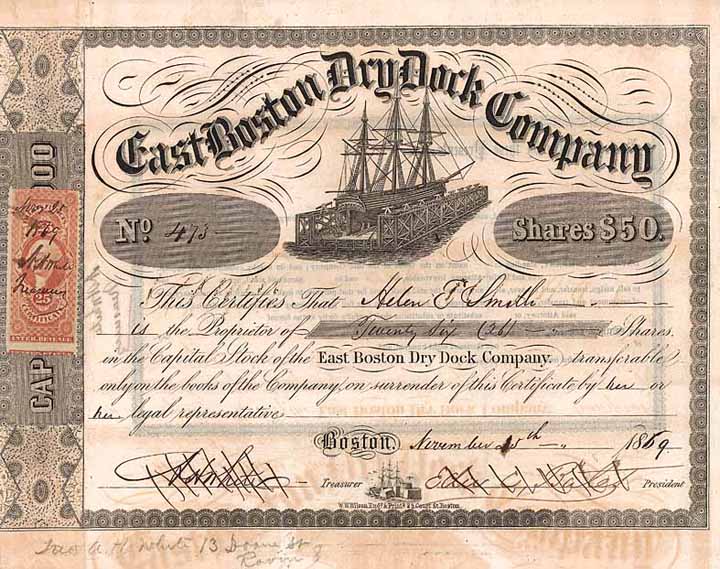 East Boston Dry Dock Company
No 473
Shares $50.
This Certifies That Helen F. Smith
is the Proprietor of Twenty Six (26) Shares
in the Capital Stock of the East Boston Dry Dock Company. transferable
only on the books of the Company, on surrender of this Certificate by her or
her legal representative
Boston, November 20th 1869
Treasurer
President
W.W. Wilson, Eng. & Print. 23 Court St. Boston.
CAP
000
1869
Treasurer
25
CERTIFICATE
INTER. REVENUE
A. H. White 13 Doane St